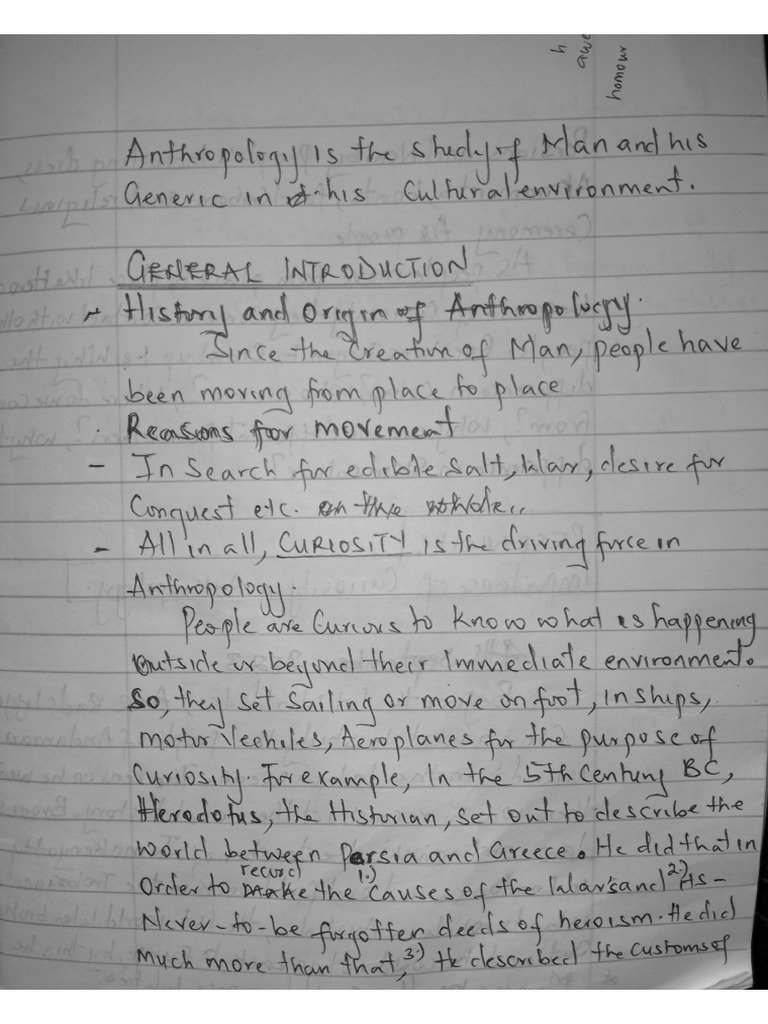 h
awe
homour
Anthropology is the study of Man and his
Generic in his Cultural environment.
GENERAL INTRODUCTION
History and Origin of Anthropology.
Since the Creation of Man, people have
been moving from place to place
Reasons for movement
- In Search for edible Salt, War, desire for
Conquest etc. on the whole..
- All in all, CURIOSITY is the driving force in
Anthropology.
People are Curious to know what is happening
outside or beyond their immediate environment.
So, they set Sailing or move on foot, in ships,
motor Vechiles, Aeroplanes for the purpose of
Curiosity. For example, In the 5th Century BC,
Herodotus, the Historian, set out to describe the
World between Persia and Greece. He did that in
Order to record 1.) the Causes of the Wars and 2.) its -
Never-to-be forgotten deeds of heroism. He did
much more than that, 3.) He described the Customs of